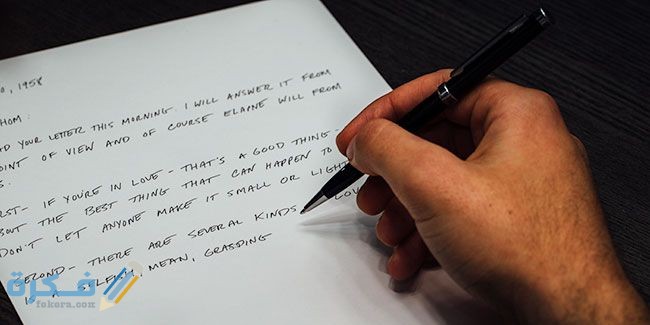 0, 1958
HOM:
AD YOUR LETTER THIS MORNING. I WILL ANSWER IT FROM
OINT OF VIEW AND OF COURSE ELAINE WILL FROM
S.
RST - IF YOU'RE IN LOVE - THAT'S A GOOD THING -
BOUT THE BEST THING THAT CAN HAPPEN TO
DON'T LET ANYONE MAKE IT SMALL OR LIGHT
ECOND - THERE ARE SEVERAL KINDS LOV
IS A SELFISH, MEAN, GRASPING
فكرة
fokera.com